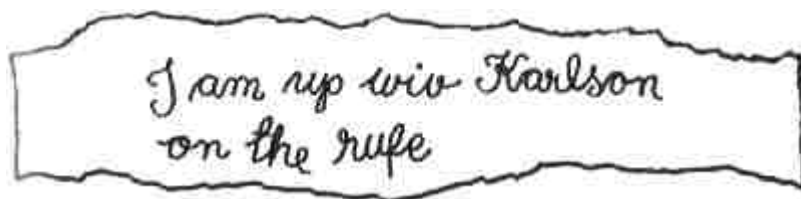 I am up wiv Karlson
on the rufe